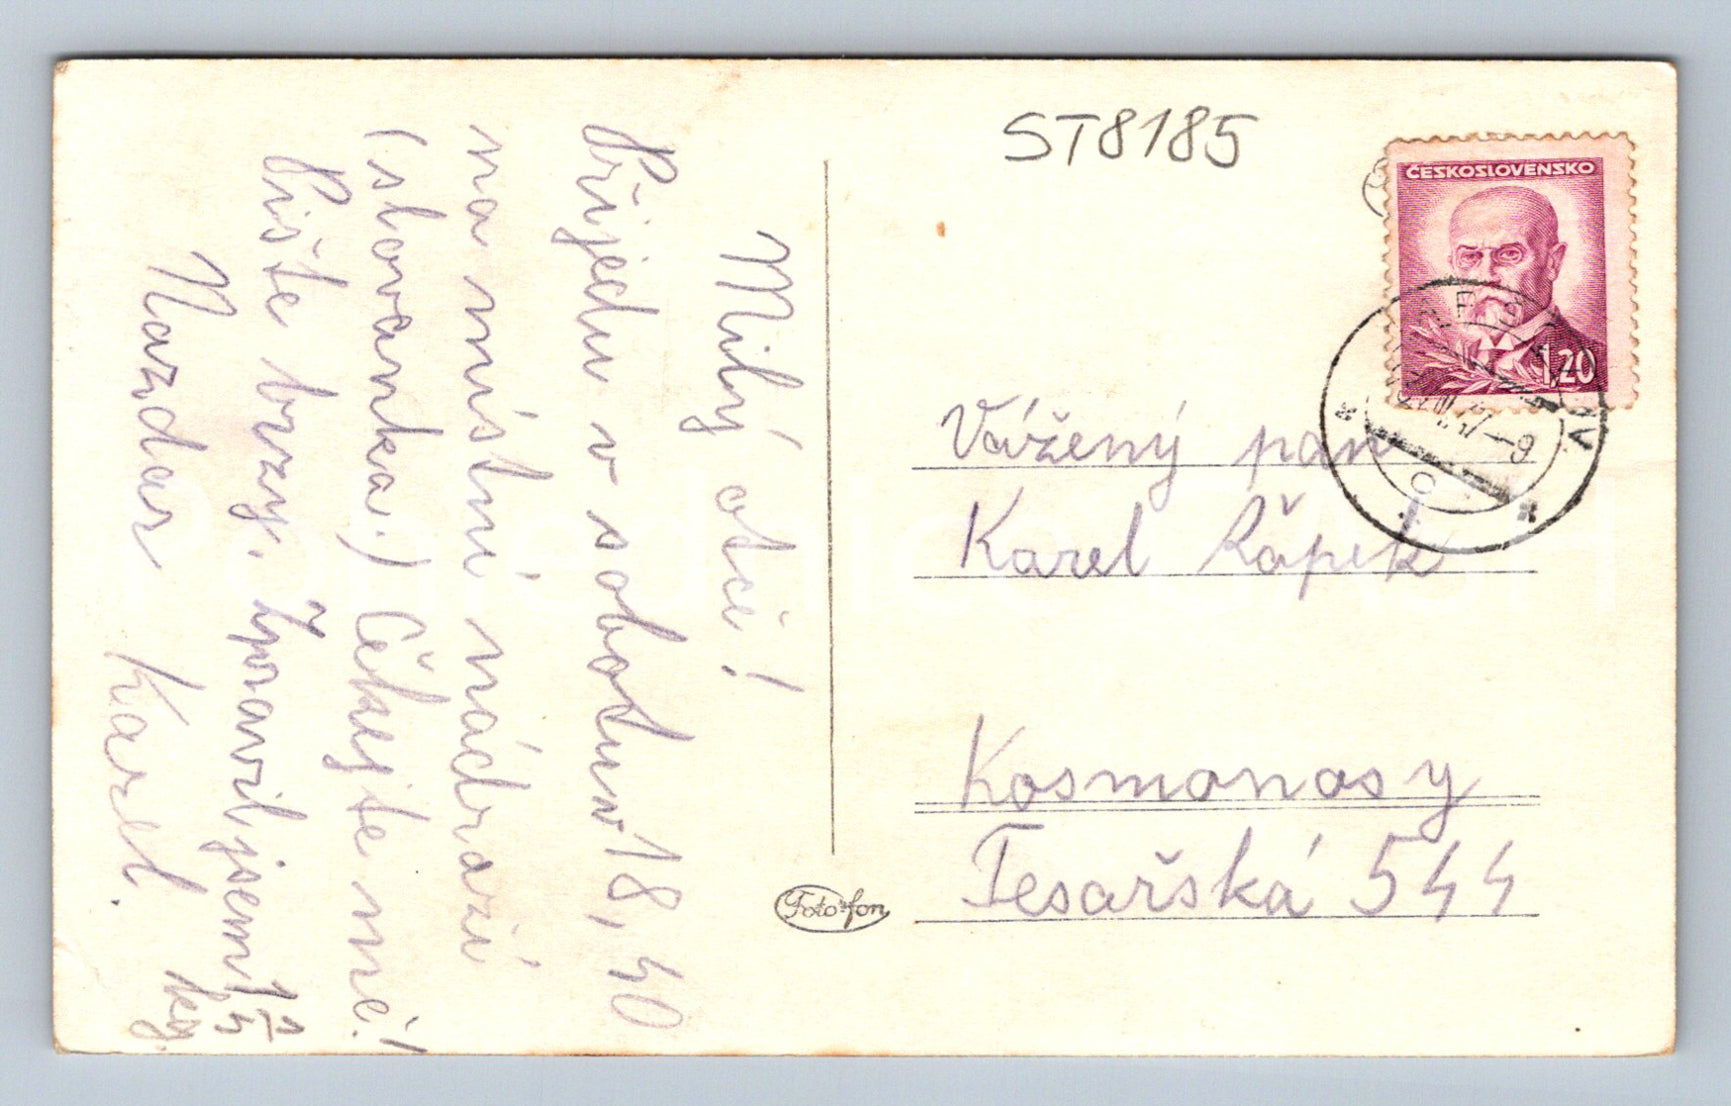 ST8185
ČESKOSLOVENSKO
1,20
Milý otče!
Přijedu v sobotu v 18,40
na místní nádrazí
(slovanka.) Čekejte mně!
Pište brzy. Zpravil jsem 1 1/5 kg.
Nazdar Karel.
Vážený pan
Karel Řápek
Kosmonosy
Tesařská 544
Fotofon